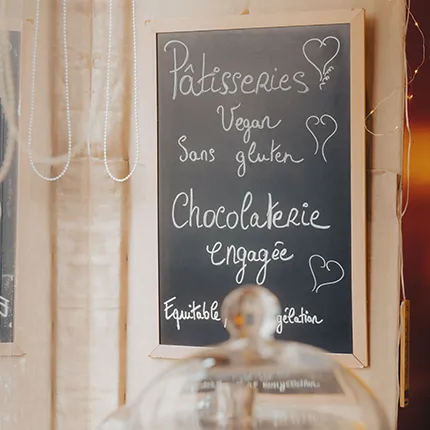 Pâtisseries
Vegan
Sans gluten
Chocolaterie
engagée
Equitable,